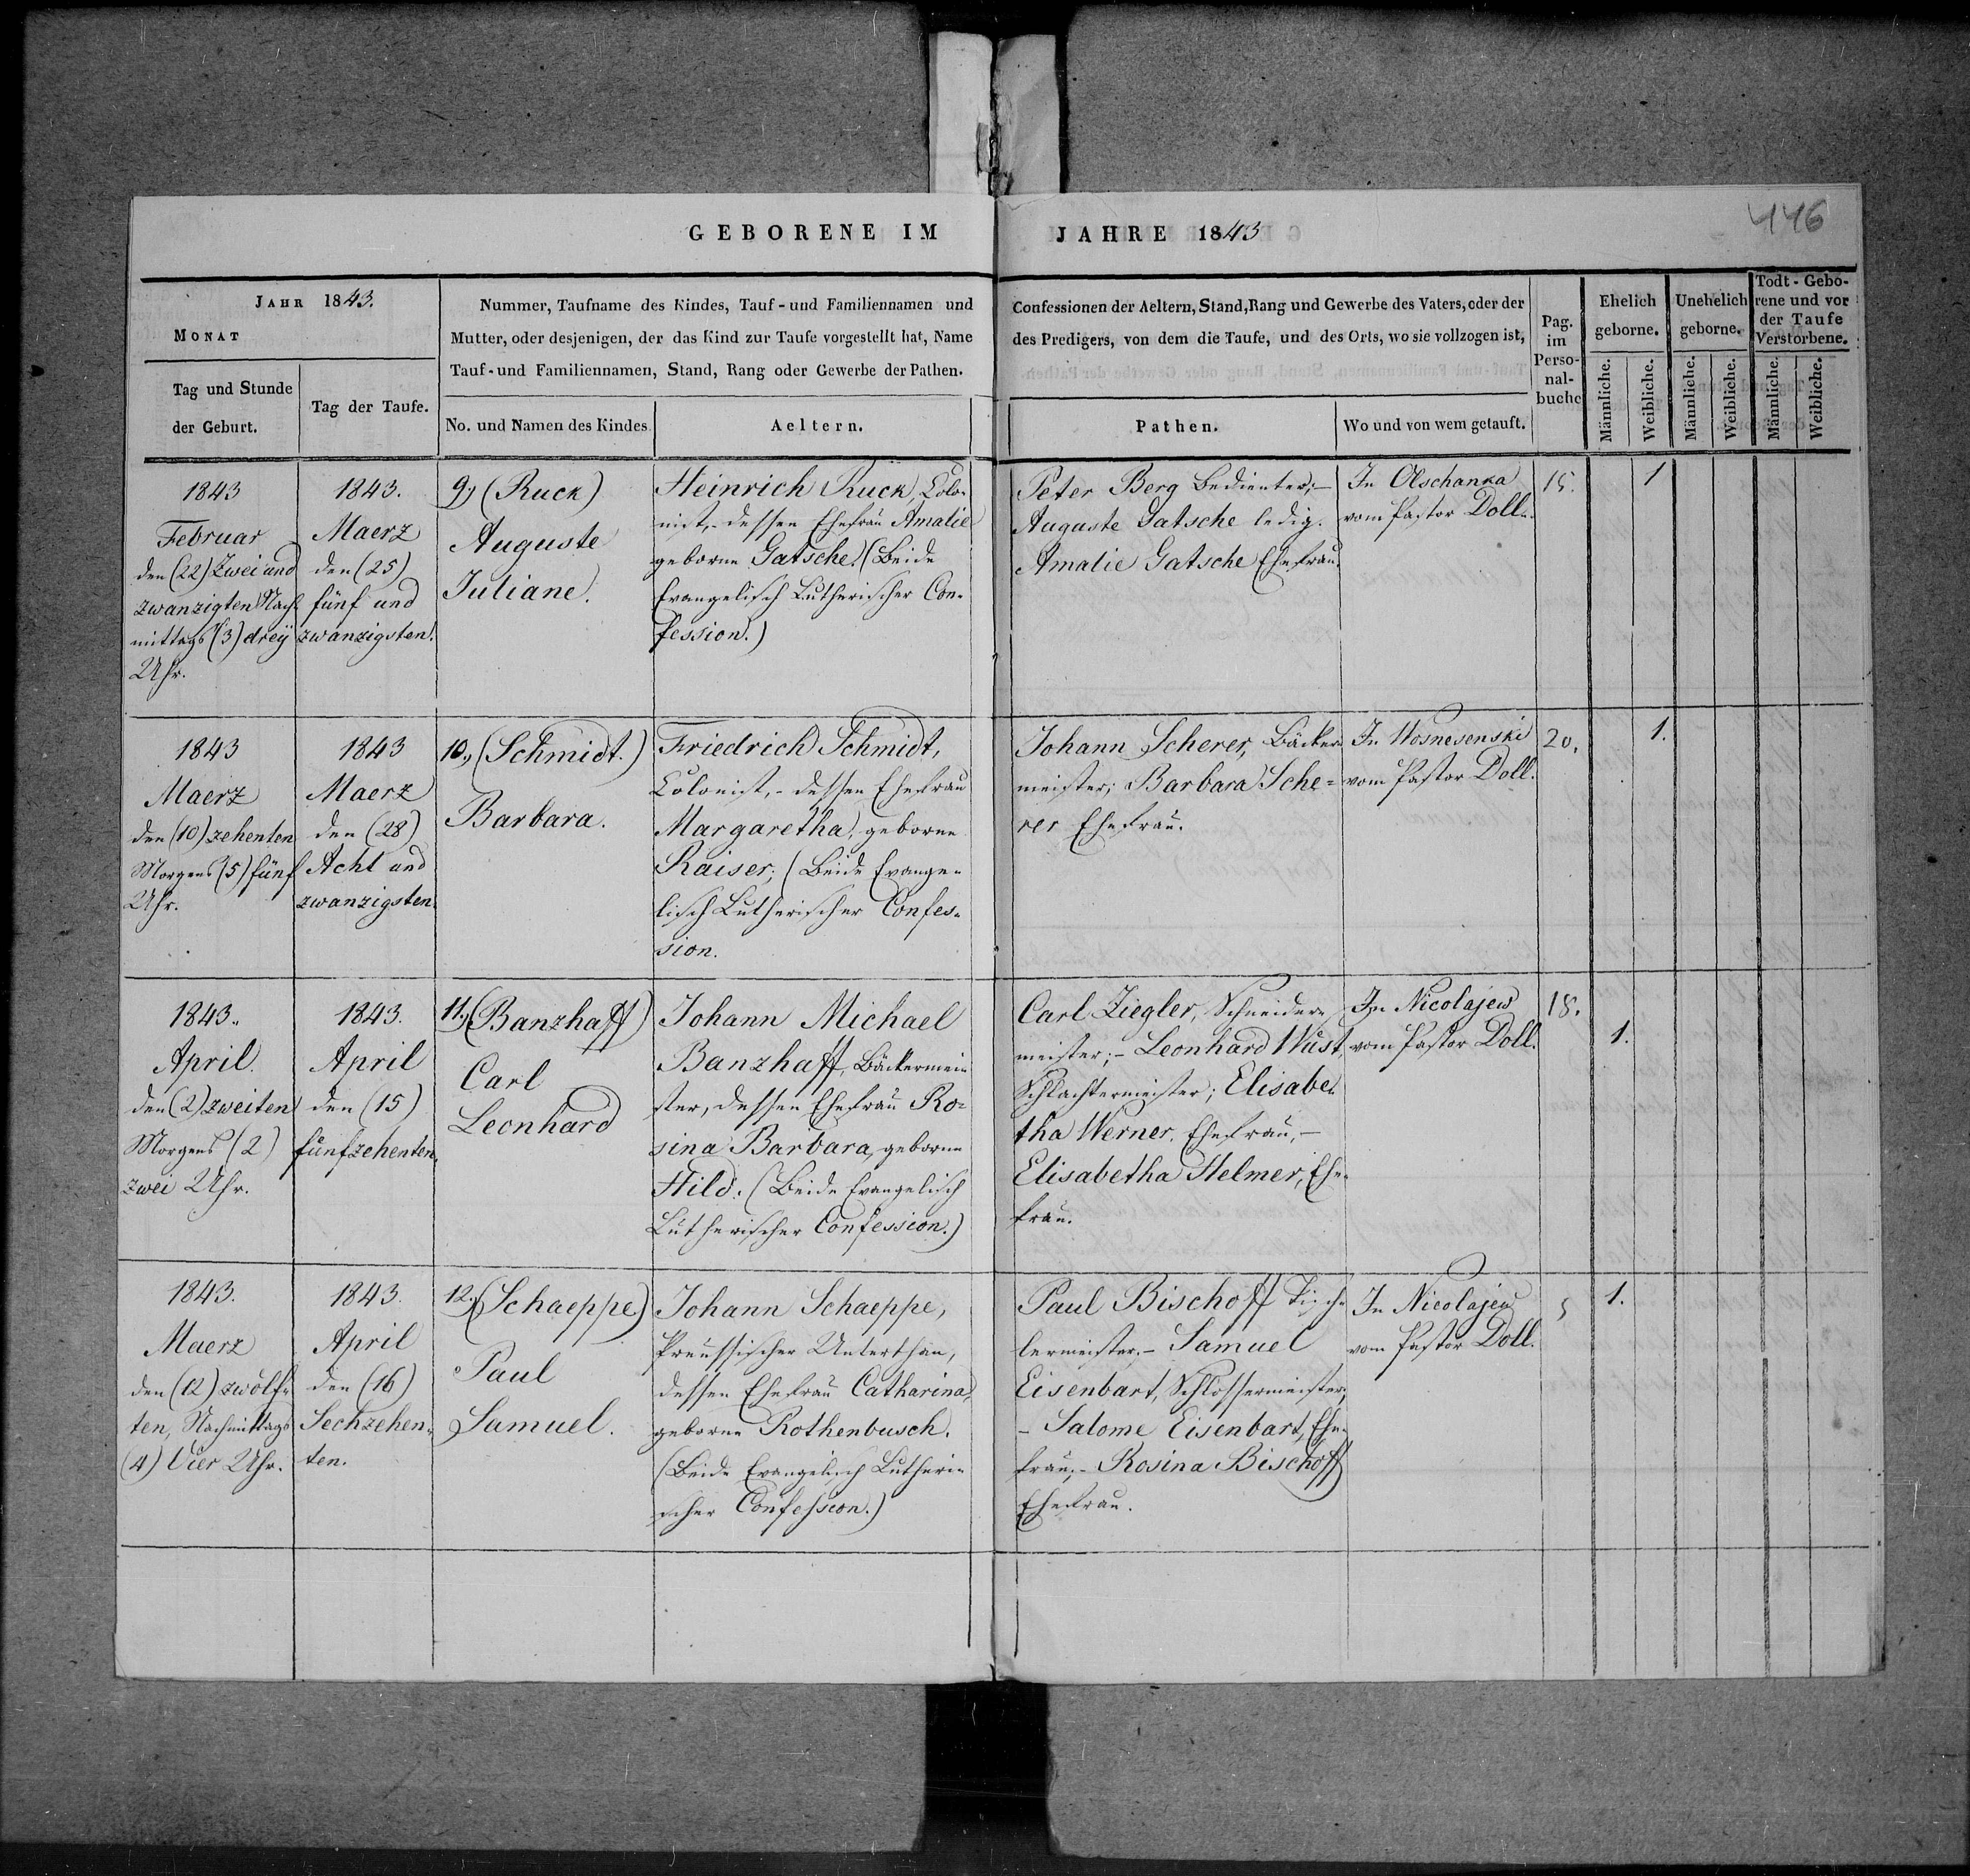 446
GEBORENE IM JAHRE 1843
JAHR 1843.
MONAT
Tag und Stunde
der Geburt.
Tag der Taufe.
Nummer, Taufname des Kindes, Tauf- und Familiennamen und
Mutter, oder desjenigen, der das Kind zur Taufe vorgestellt hat, Name
Tauf- und Familiennamen, Stand, Rang oder Gewerbe der Pathen.
No. und Namen des Kindes.
Aeltern.
Confessionen der Aeltern, Stand, Rang und Gewerbe des Vaters, oder der
des Predigers, von dem die Taufe, und des Orts, wo sie vollzogen ist,
Pathen.
Wo und von wem getauft.
Pag.
im
Perso-
nal-
buche
Ehelich
geborne.
Männliche.
Weibliche.
Unehelich
geborne.
Männliche.
Weibliche.
Todt-Gebo-
rene und vor
der Taufe
Verstorbene.
Männliche.
Weibliche.
1843
Februar
den (22) Zwei und
zwanzigten Nach
mittags (3) dreÿ
Uhr.
1843.
Maerz
den (25)
fünf und
zwanzigsten.
9, (Ruck)
Auguste
Juliane.
Heinrich Ruck, Colo-
nist, dessen Ehefrau Amalie
geborne Gatsche. (Beide
Evangelisch Lutherischer Con-
fession.)
Peter Berg Bedienter; –
Auguste Gatsche ledig.
Amalie Gatsche Ehefrau.
In Olschanka
vom Pastor Doll.
15.
1
1843
Maerz
den (10) zehenten
Morgens (5) fünf
Uhr.
1843
Maerz
den (28)
Acht und
zwanzigsten.
10, (Schmidt.)
Barbara.
Friedrich Schmidt,
Colonist, - dessen Ehefrau
Margaretha, geborne
Kaiser; (Beide Evange-
lisch Lutherischer Confes-
sion.
Johann Scherer, Bäcker
meister; Barbara Sche-
rer Ehefrau.
In Wosnesenski
vom Pastor Doll.
20.
1.
1843.
April.
den (2) zweiten
Morgens (2)
zwei Uhr.
1843.
April
den (15)
fünfzehenten.
11, (Banzhaff)
Carl
Leonhard
Johann Michael
Banzhaff, Bäckermei-
ster, dessen Ehefrau Ro-
sina Barbara, geborne
Hild. (Beide Evangelisch
Lutherischer Confession.)
Carl Ziegler, Schneider-
meister; - Leonhard Wust,
Schlachtermeister; Elisabe-
tha Werner, Ehefrau, –
Elisabetha Helmer, Ehe-
frau.
In Nicolajew
vom Pastor Doll.
18.
1.
1843.
Maerz
den (12) zwölf-
ten, Nachmittags
(4) Vier Uhr.
1843.
April
den (16)
Sechzehen-
ten.
12, (Schaeppe)
Paul
Samuel.
Johann Schaeppe,
Preussischer Unterthan,
dessen Ehefrau Catharina,
geborne Rothenbusch.
(Beide Evangelisch Lutheri-
scher Confession.)
Paul Bischoff Tisch-
lermeister. - Samuel
Eisenbart, Schlossermeister;
- Salome Eisenbart, Ehe-
frau; - Rosina Bischoff
Ehefrau.
In Nicolajew
vom Pastor Doll.
5
1.